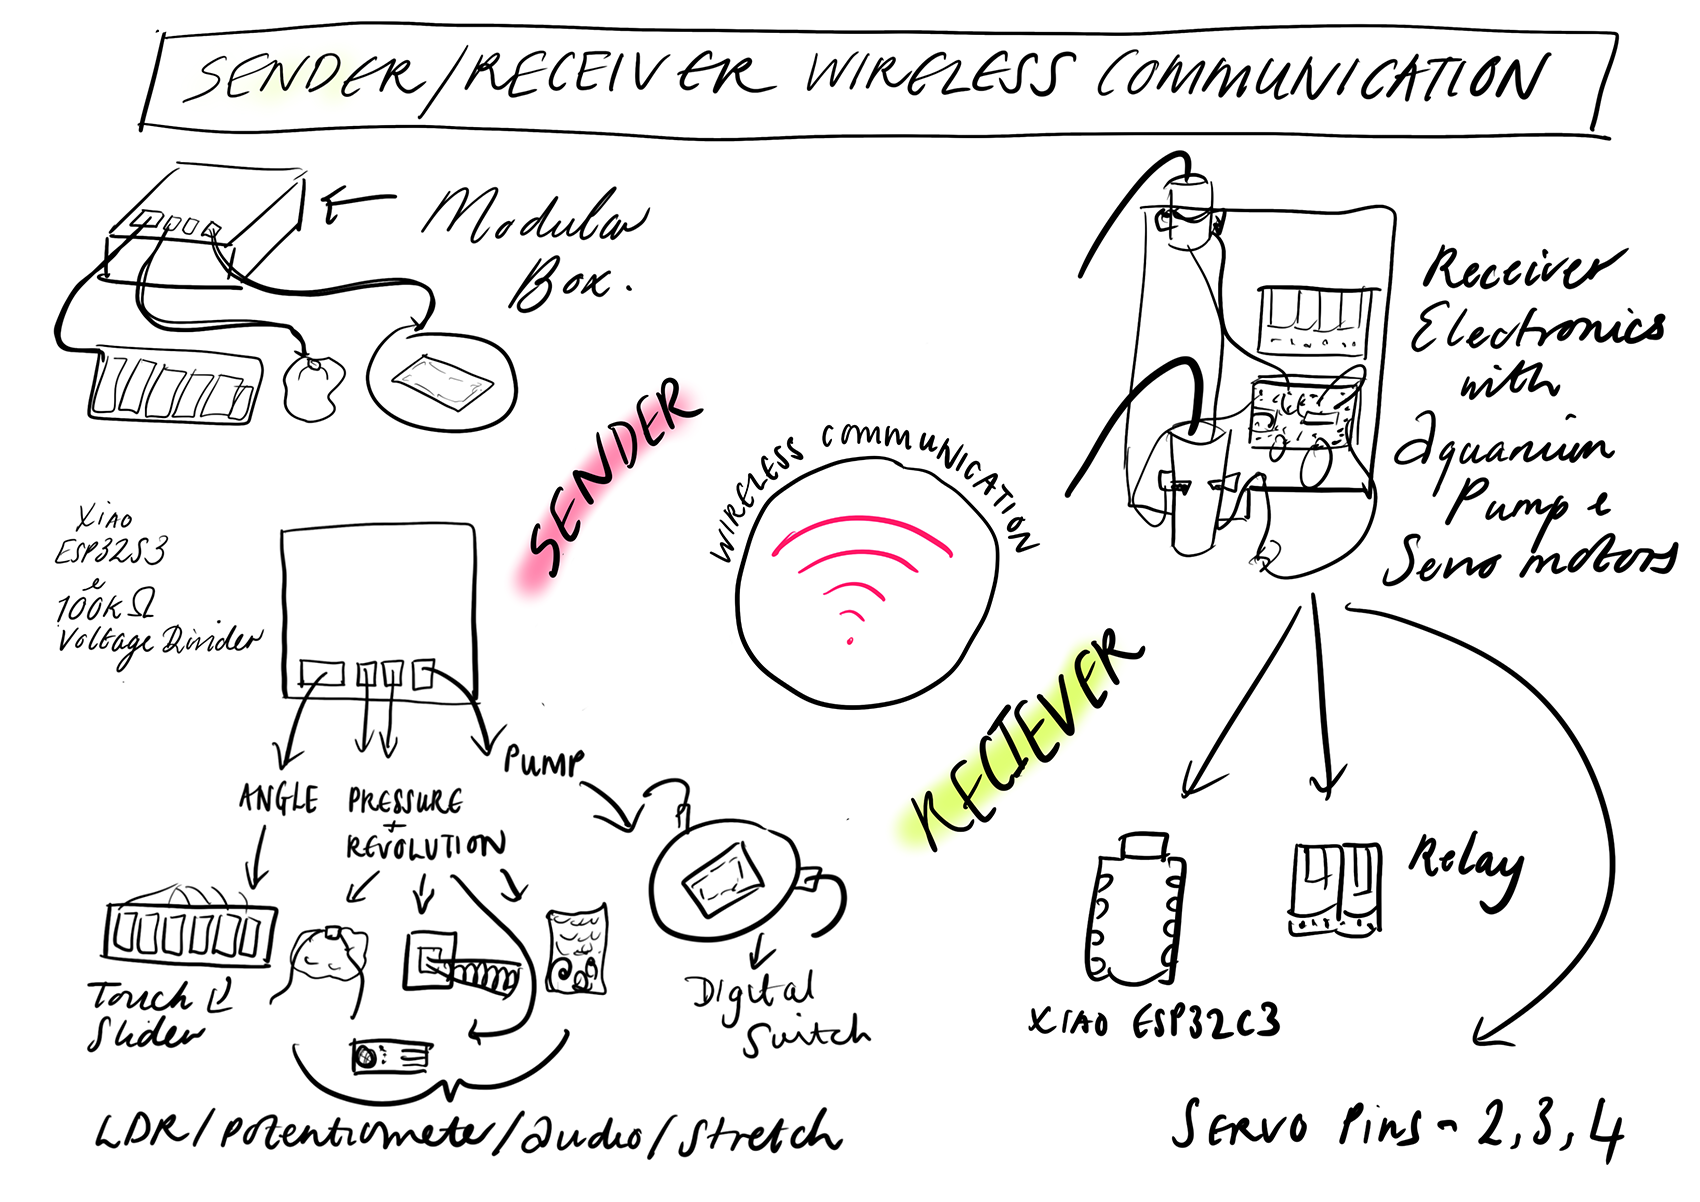 SENDER/RECEIVER WIRELESS COMMUNICATION
Modular
Box.
Receiver
Electronics
with
Aquarium
Pump &
Servo motors
SENDER
WIRELESS COMMUNICATION
RECIEVER
XIAO
ESP32S3
&
100KΩ
Voltage Divider
ANGLE
PRESSURE
+
REVOLUTION
PUMP
Touch
Slider
Digital
Switch
LDR/potentiometer/Audio/Stretch
XIAO ESP32C3
Relay
SERVO Pins - 2,3,4